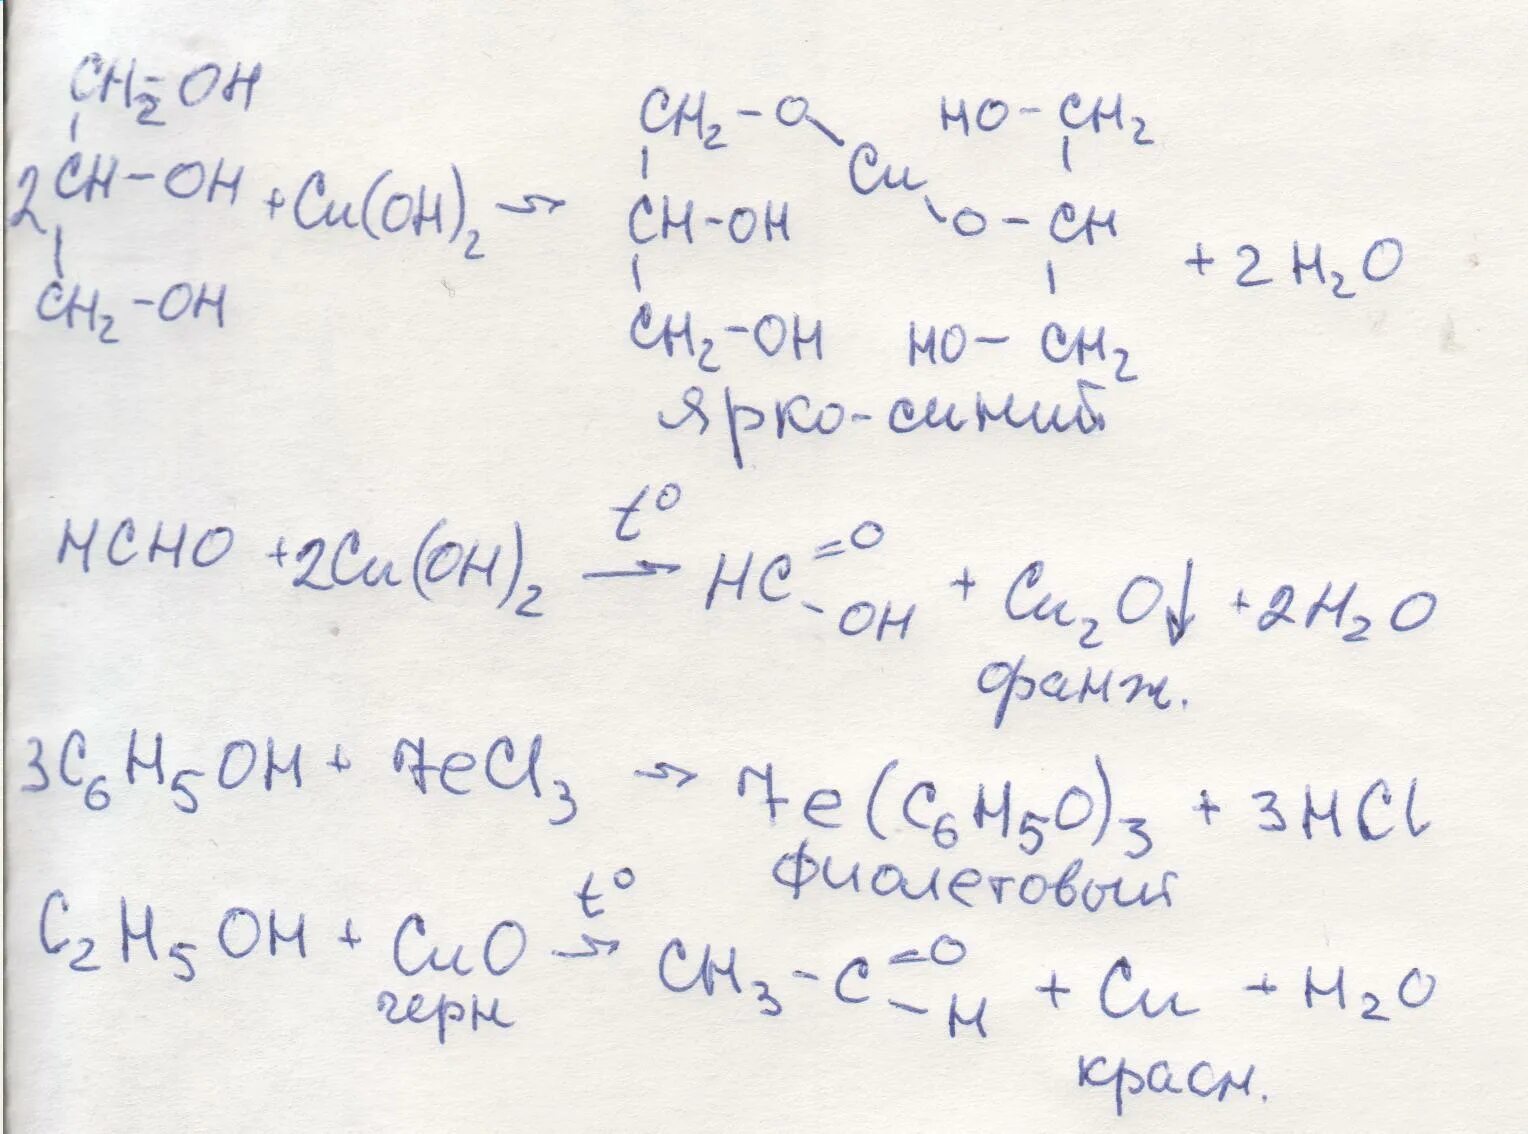 CH₂-OH
2 CH-OH + Cu(OH)₂ →
CH₂-OH
CH₂-O Cu HO-CH₂
CH-OH O-CH + 2H₂O
CH₂-OH HO-CH₂
ярко-синий
HCHO + 2Cu(OH)₂ t° → HC =O -OH + Cu₂O↓ + 2H₂O
оранж.
3C₆H₅OH + FeCl₃ → Fe(C₆H₅O)₃ + 3HCl
фиолетовый
C₂H₅OH + CuO t° → CH₃-C =O -H + Cu + H₂O
черн
красн.